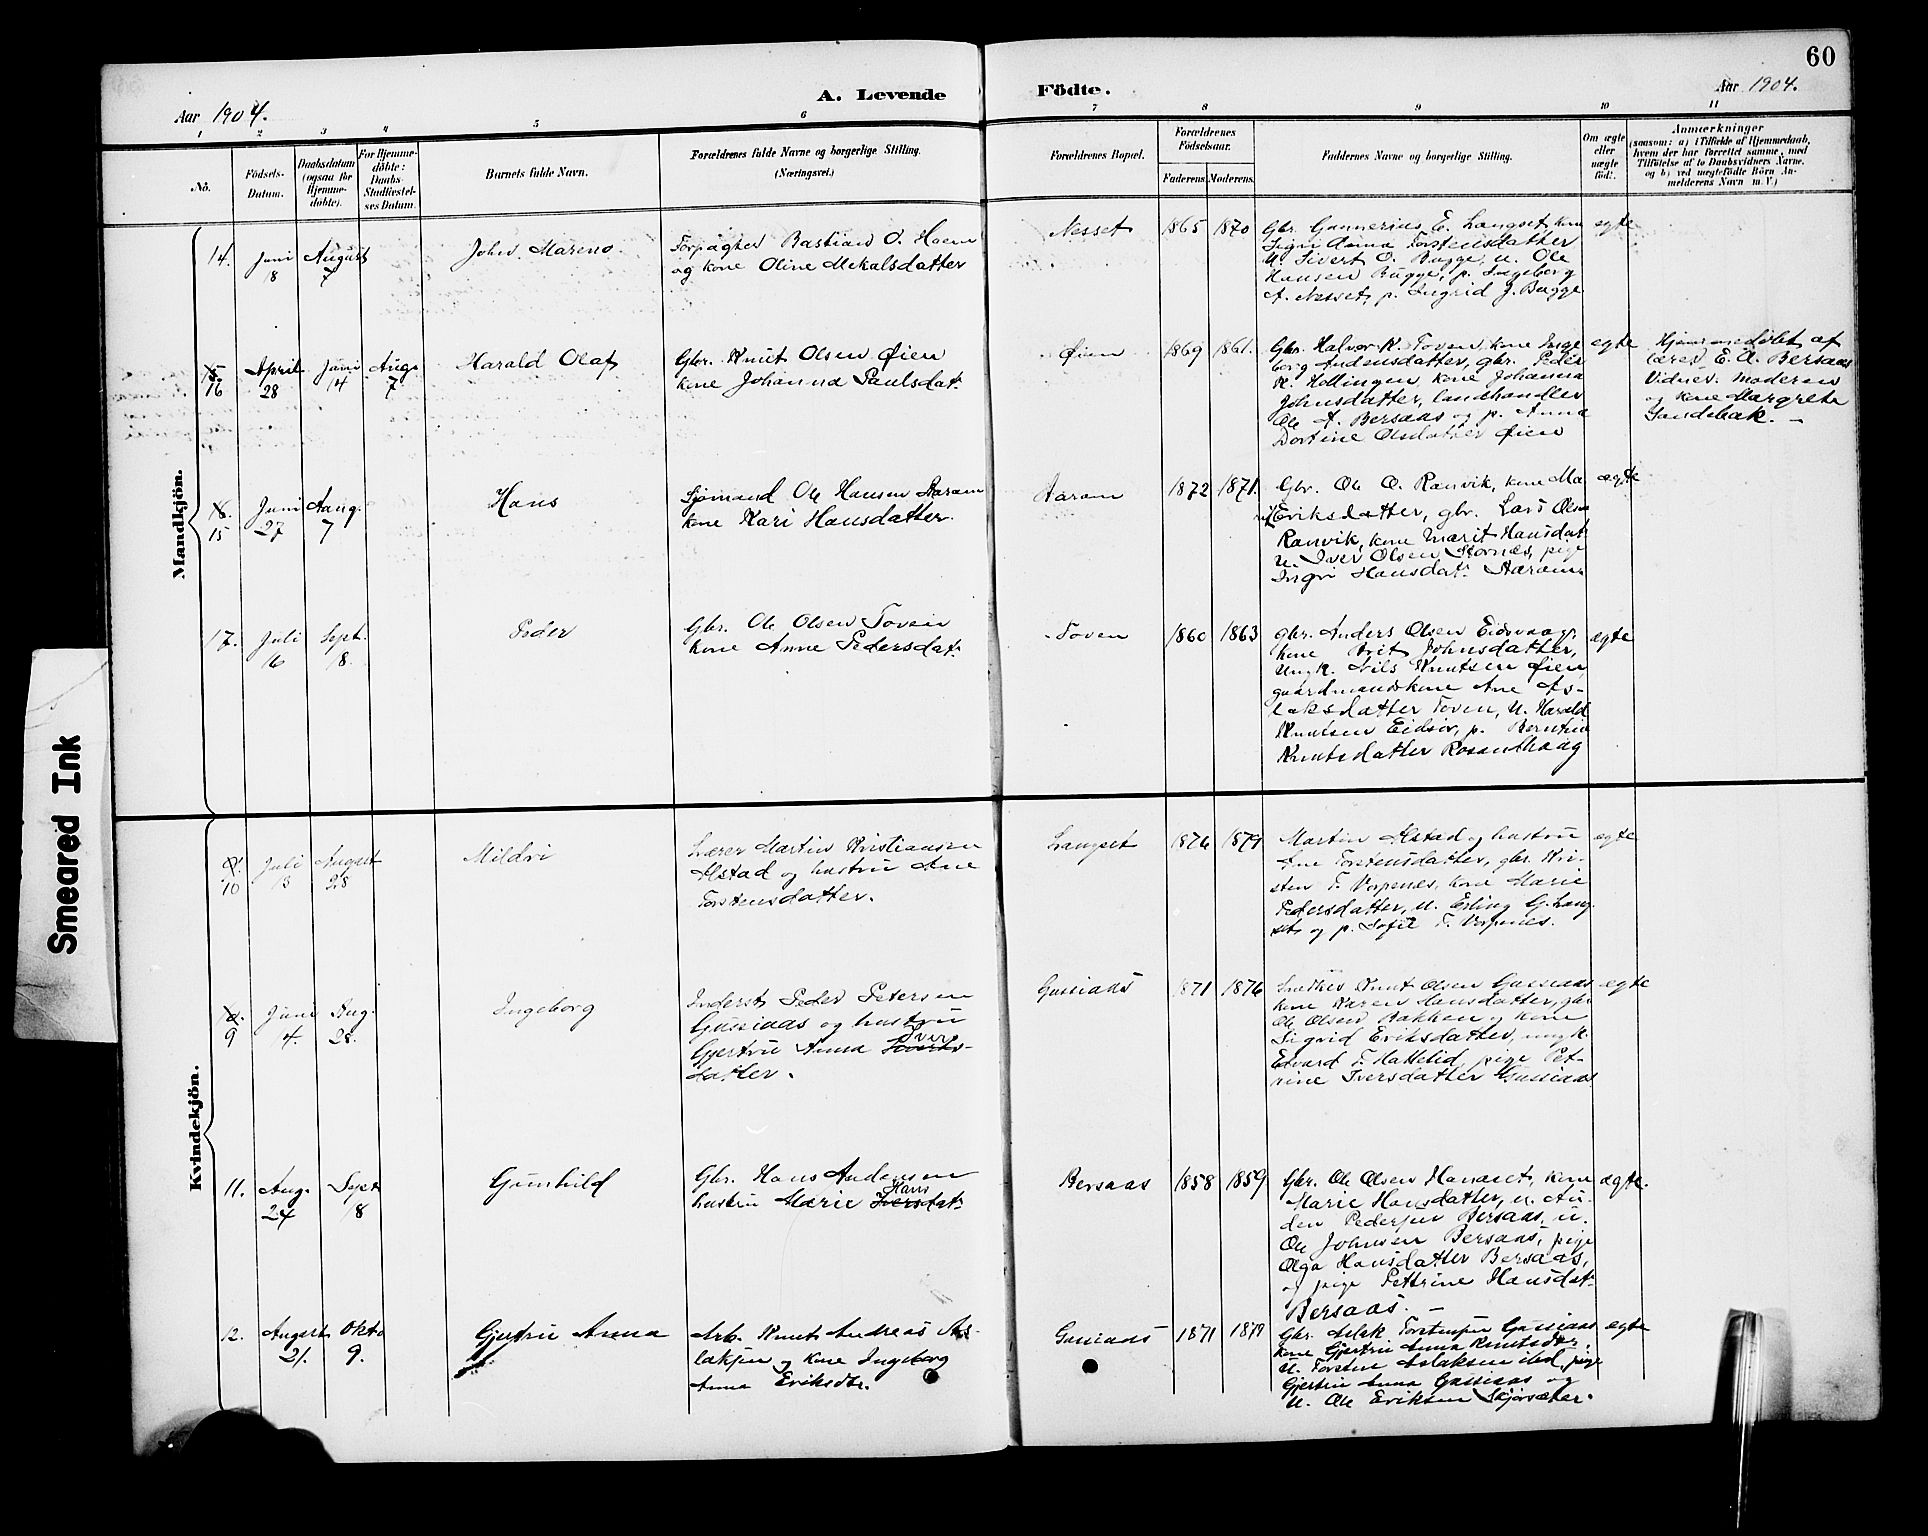 60
Aar 1904.
A. Levende
Födte.
Aar 1904.
1 2 3 4 5 6 7 8 9 10 11
No.
Födsels-
Datum.
Daabsdatum
(ogsaa for
Hjemme-
döbte).
For Hjemme-
döbte:
Daabs-
Stadfæstel-
ses Datum.
Barnets fulde Navn.
Forældrenes fulde Navne og borgerlige Stilling.
(Næringsvei.)
Forældrenes Bopæl.
Forældrenes
Födselsaar.
Faderens. Moderens.
Faddernes Navne og borgerlige Stilling.
Om ægte
eller
uægte
født.
Anmærkninger
(saasom: a) i Tilfælde af Hjemmedaab,
hvem der har forrettet samme, med
Tilföielse af to Daabsvidners Navne,
og b) ved uægtefödte Börn An-
melderens Navn m. V.)
Mandkjön.
14.
Juni
18
August
7
Johan Mareno.
Forpagter Bastian O. Hoem
og kone Oline Mikalsdatter
Nesset
1865 1870
Gbr. Gunnerius E. Langset, kone
Sigri Anna Torstensdatter
U. Sivert O. Bugge, u. Ole
Hansen Bugge, p. Ingeborg
A. Nesset, p. Ingrid J. Bugge
egte
15
16
April
28
Juni
14
Aug.
7
Harald Olaf
Gbr. Knut Olsen Øien
kone Johanna Paulsdat.
Øien
1869 1861.
Gbr. Halvor K. Toven, kone Inge
borg Andersdatter, gbr. Peder
K. Hollingen, kone Johanna
Johnsdatter, landhandler
Ole A. Bersaas og p. Anna
Dortine Olsdatter Øien
egte
Hjemmedøbt af
lærer E. A. Bersaas
Vidner: moderen
og kone Margrete
Sandebak. -
15
Juni
27
Aug.
7
Hans
Sjømand Ole Hansen Aaram
kone Kari Hansdatter.
Aaram
1872 1871.
Gbr. Ole O. Ranvik, kone Ma
rit Eriksdatter, gbr. Lars Olsen
Ranvik, kone Marit Hansdat.
u. Iver Olsen Stornes, pige
Ingri Hansdat. Aaram.
ægte
17.
Juli
16
Sept.
18.
Peder
Gbr. Ole Olsen Toven
kone Anne Pedersdat.
Toven
1860 1863
gbr. Anders Olsen Eidsvaag,
kone Brit Johnsdatter,
Ungk. Nils Knutsen Øien,
gaardmandskone Ane As-
laksdatter Toven, U. Harald
Knutsen Eidsør, p. Berntine
Knutsdatter Rosenthaag
ægte
Kvindekjön.
10
Juli
13
August
28
Mildri
Lærer Martin Kristiansen
Alstad og hustru Ane
Torstensdatter.
Langset
1876 1879
Martin Alstad og hustru
Ane Torstensdatter, gbr. Kri-
sten T. Vorpenes, kone Marie
Pedersdatter, u. Erling G. Lang-
set og p. Sofie T. Vorpenes.
egte
9
Juni
14.
Aug.
28.
Ingeborg
Inderst Peder Petersen
Gussiaas og hustru
Gjertru Anna Ivers
datter.
Gussiaas
1871 1876
Snedker Knut Olsen Gussiaas
kone Karen Hansdatter, gbr
Ole Olsen Bakken og kone
Sigrid Eriksdatter, ungk.
Edvard T. Hattelid, pige Pet-
rine Iversdatter Gussiaas
egte
11.
Aug.
24
Sept
18
Gunhild
Gbr. Hans Andersen
hustru Marie Hans
Iversdat.
Bersaas
1858 1859
Gbr. Ole Olsen Hanaset, kone
Marie Hansdatter, u. Au-
den Pedersen Bersaas, u.
Ole Johnsen Bersaas, pige
Olga Hansdatter Bersaas,
og pige Pettrine Hansdat.
Bersaas. -
ægte.
12.
August
21.
Okto
9.
Gjertru Anna
Arb. Knut Andreas As-
laksen og kone Ingeborg
Anna Eriksdtr.
Gussiaas
1871 1879
Gbr. Aslak Torstensen Gussiaas
kone Gjertru Anna Knutsdtr,
U. Torsten Aslaksen ibd, pige
Gjertru Anna Gussiaas og
U. Ole Eriksen Skjørsæter.
egte
Smeared Ink